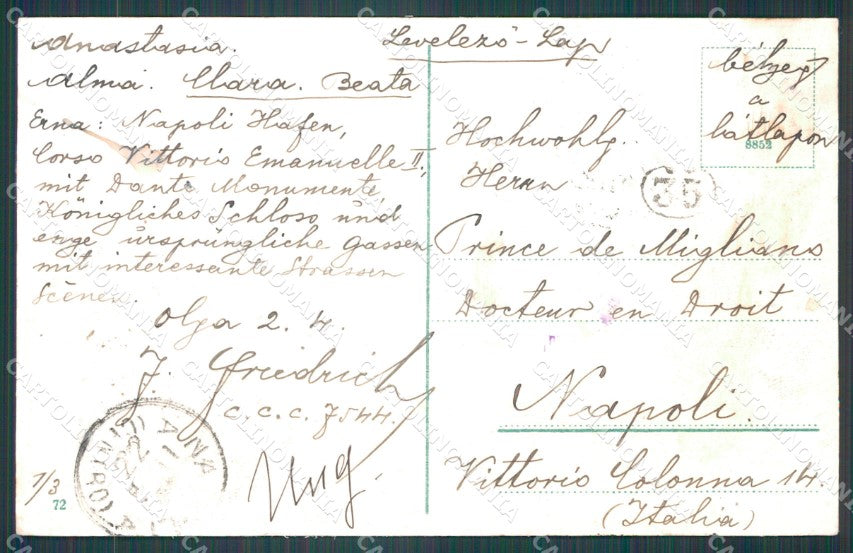 Anastasia.
Alma. Clara. Beata
Erna: Napoli Hafen,
Corso Vittorio Emanuelle II.,
mit Dante Monumente,
Königliches Schloss und
enge ursprüngliche Gassen
mit interessante Strassen
Scènen.
Olga 2. 4.
J. Friedrich
C. C. C. 7544.
Ung.
1/3
72
Levelező-Lap
bélyeg
a
hátlapon
8852
Hochwohlg.
Herrn
35
Prince de Migliano
Docteur en Droit
Napoli.
Vittorio Colonna 14.
(Italia)
CARTOLINOMANIA